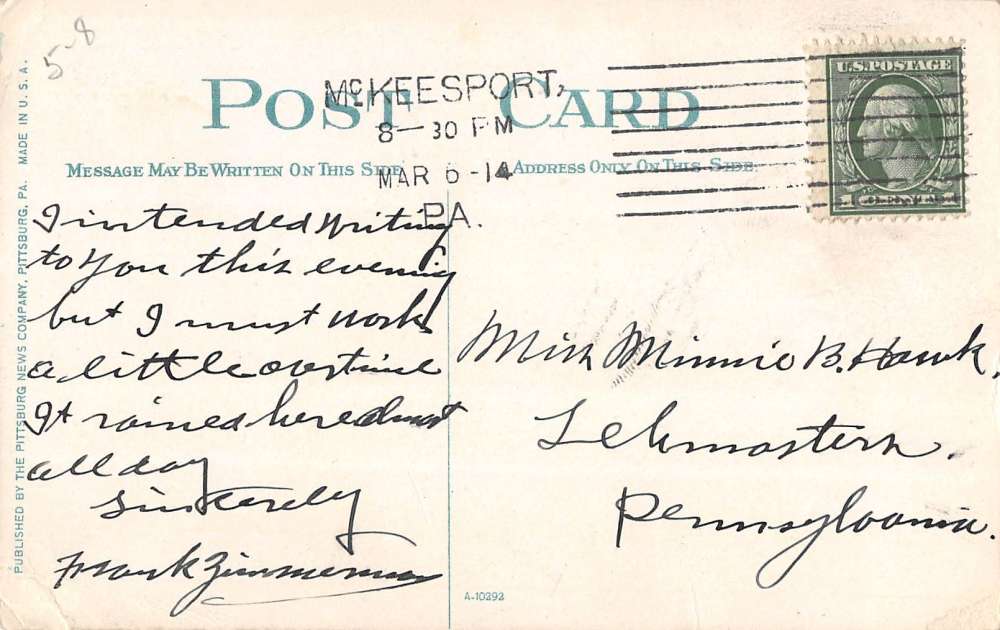 5-8
POST CARD
McKEESPORT,
8-30 PM
MAR 6-14
PA.
U.S. POSTAGE
MESSAGE MAY BE WRITTEN ON THIS SIDE
ADDRESS ONLY ON THIS SIDE
I intended writing
to you this evening
but I must work
a little overtime
It rained here almost
all day
Sincerely
Frank Zimmerman
Miss Minnie B. Hawk,
Lehmasters.
Pennsylvania.
PUBLISHED BY THE PITTSBURG NEWS COMPANY, PITTSBURG, PA. MADE IN U.S.A.
A-10393